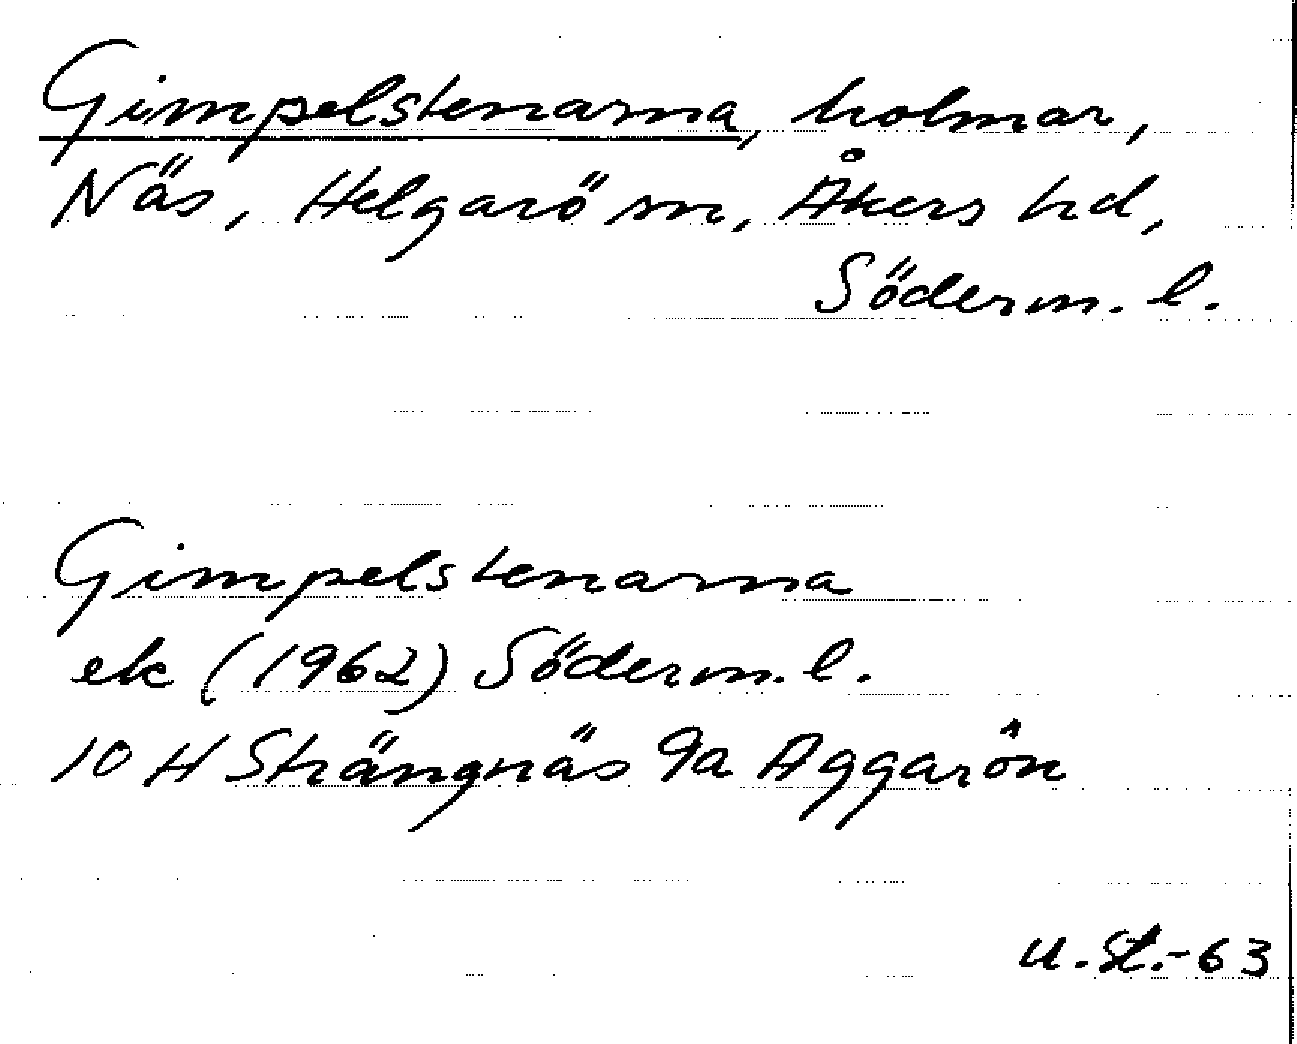 Gimpelstenarna, holmar,
Näs, Helgarö sn, Åkers hd,
Söderm. l.
Gimpelstenarna
ek (1962) Söderm. l.
10 H Strängnäs 9a Aggarön
U. St. -63